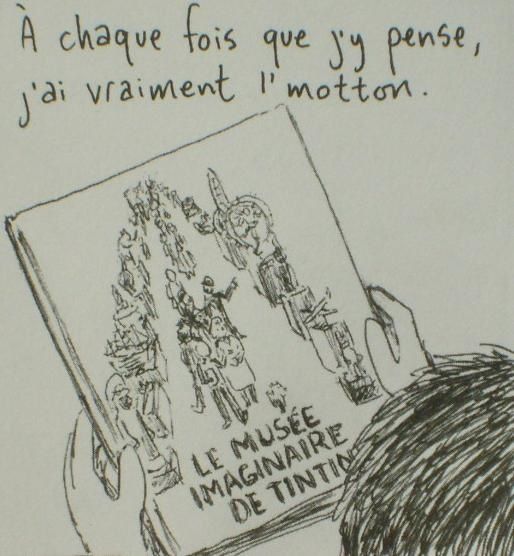 À chaque fois que j'y pense,
j'ai vraiment l'motton.
LE MUSÉE
IMAGINAIRE
DE TINTIN